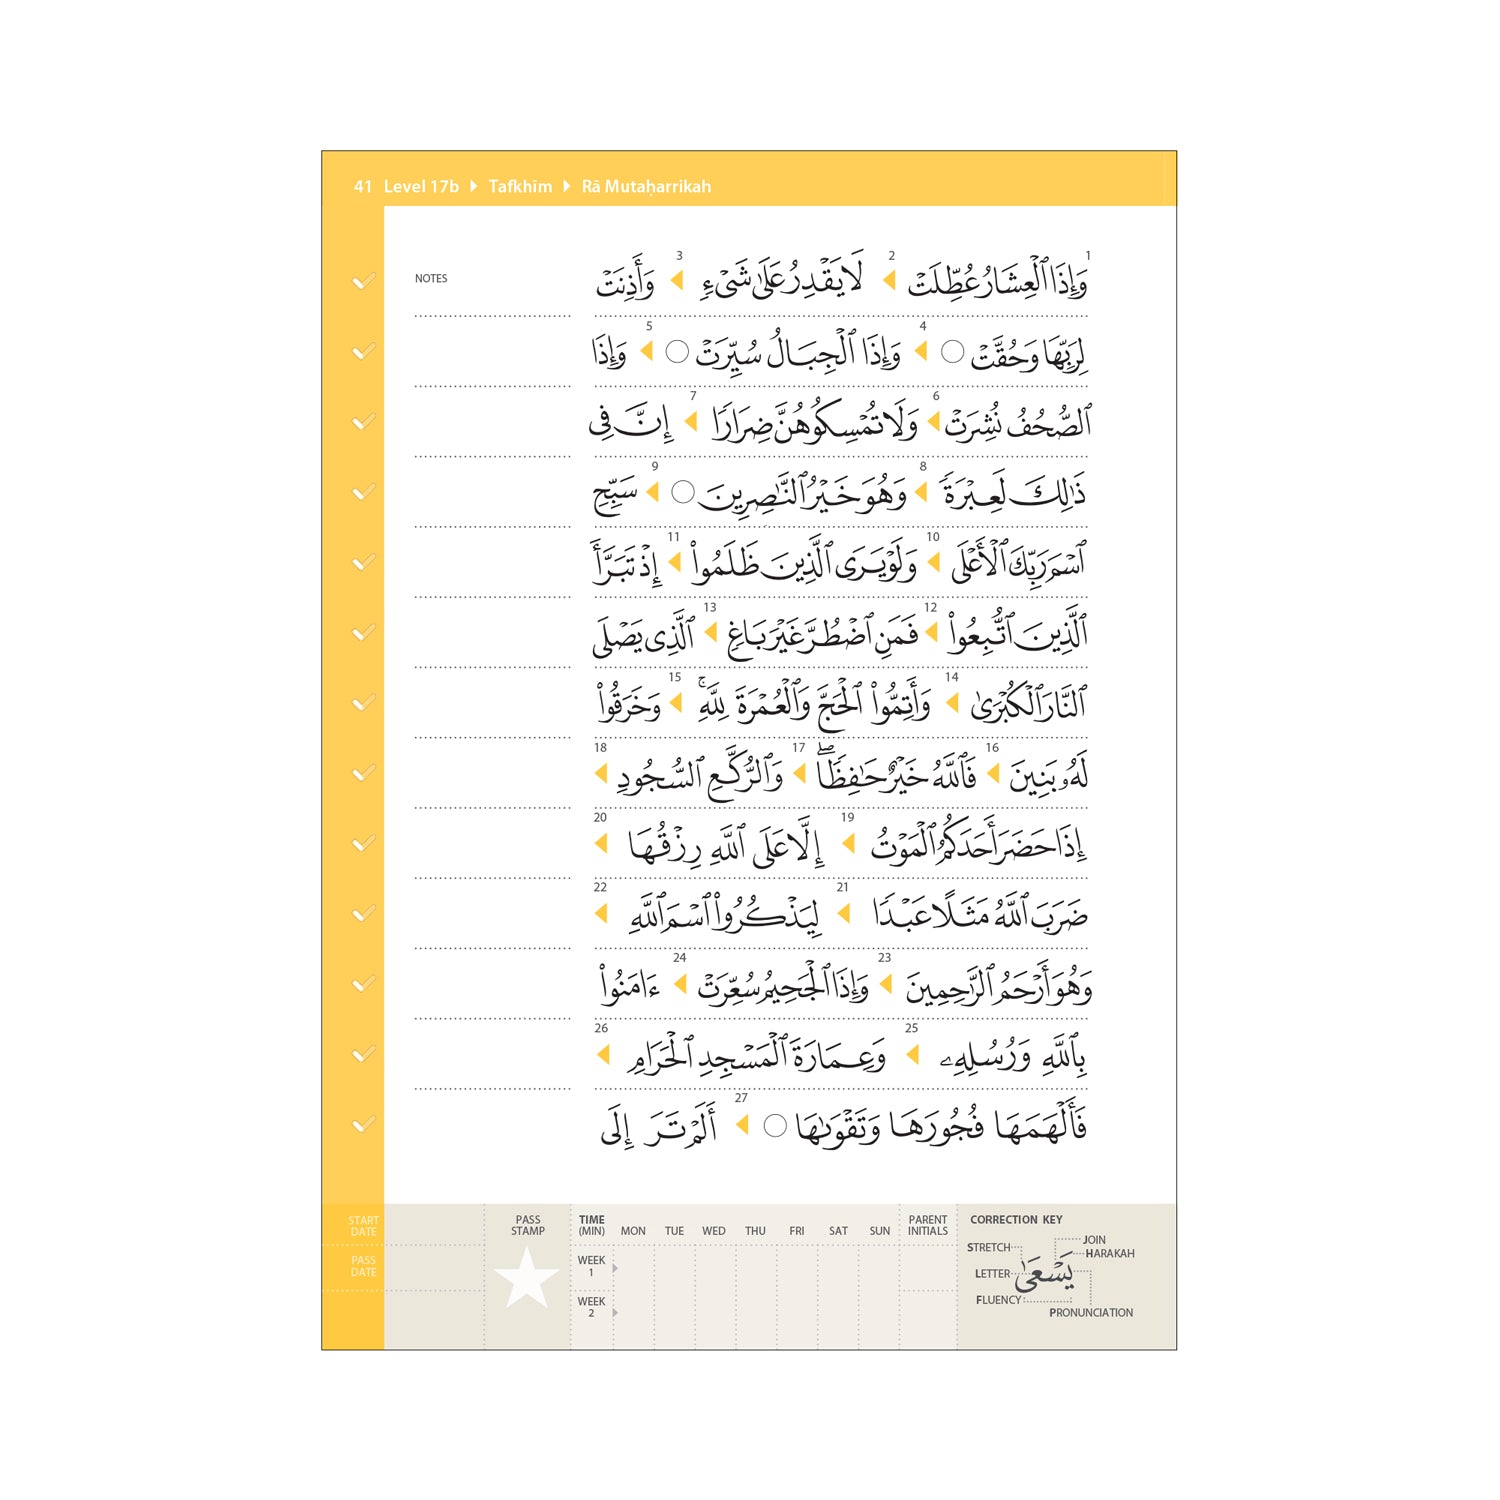 41 Level 17b ▶ Tafkhīm ▶ Rā Mutaḥarrikah
NOTES
1 وَإِذَا ٱلْعِشَارُ عُطِّلَتْ 2 لَا يَقْدِرُ عَلَىٰ شَىْءٍ 3 وَأَذِنَتْ
لِرَبِّهَا وَحُقَّتْ 4 وَإِذَا ٱلْجِبَالُ سُيِّرَتْ 5 وَإِذَا
ٱلصُّحُفُ نُشِرَتْ 6 وَلَا تُمْسِكُوهُنَّ ضِرَارًا 7 إِنَّ فِى
ذَٰلِكَ لَعِبْرَةً 8 وَهُوَ خَيْرُ ٱلنَّـٰصِرِينَ 9 سَبِّحِ
ٱسْمَ رَبِّكَ ٱلْأَعْلَى 10 وَلَوْ يَرَى ٱلَّذِينَ ظَلَمُوا۟ 11 إِذْ تَبَرَّأَ
ٱلَّذِينَ ٱتُّبِعُوا۟ 12 فَمَنِ ٱضْطُرَّ غَيْرَ بَاغٍ 13 ٱلَّذِى يَصْلَى
ٱلنَّارَ ٱلْكُبْرَىٰ 14 وَأَتِمُّوا۟ ٱلْحَجَّ وَٱلْعُمْرَةَ لِلَّهِ ۚ 15 وَخَرَقُوا۟
لَهُۥ بَنِينَ 16 فَٱللَّهُ خَيْرٌ حَـٰفِظًا ۖ 17 وَٱلرُّكَّعِ ٱلسُّجُودِ 18
إِذَا حَضَرَ أَحَدَكُمُ ٱلْمَوْتُ 19 إِلَّا عَلَى ٱللَّهِ رِزْقُهَا 20
ضَرَبَ ٱللَّهُ مَثَلًا عَبْدًا 21 لِيَذْكُرُوا۟ ٱسْمَ ٱللَّهِ 22
وَهُوَ أَرْحَمُ ٱلرَّٰحِمِينَ 23 وَإِذَا ٱلْجَحِيمُ سُعِّرَتْ 24 ءَامَنُوا۟
بِٱللَّهِ وَرُسُلِهِۦ 25 وَعِمَارَةَ ٱلْمَسْجِدِ ٱلْحَرَامِ 26
فَأَلْهَمَهَا فُجُورَهَا وَتَقْوَىٰهَا 27 أَلَمْ تَرَ إِلَى
START DATE
PASS DATE
PASS STAMP
TIME (MIN) MON TUE WED THU FRI SAT SUN PARENT INITIALS
WEEK 1
WEEK 2
CORRECTION KEY
STRETCH
JOIN
HARAKAH
LETTER
يَسْعَىٰ
FLUENCY
PRONUNCIATION